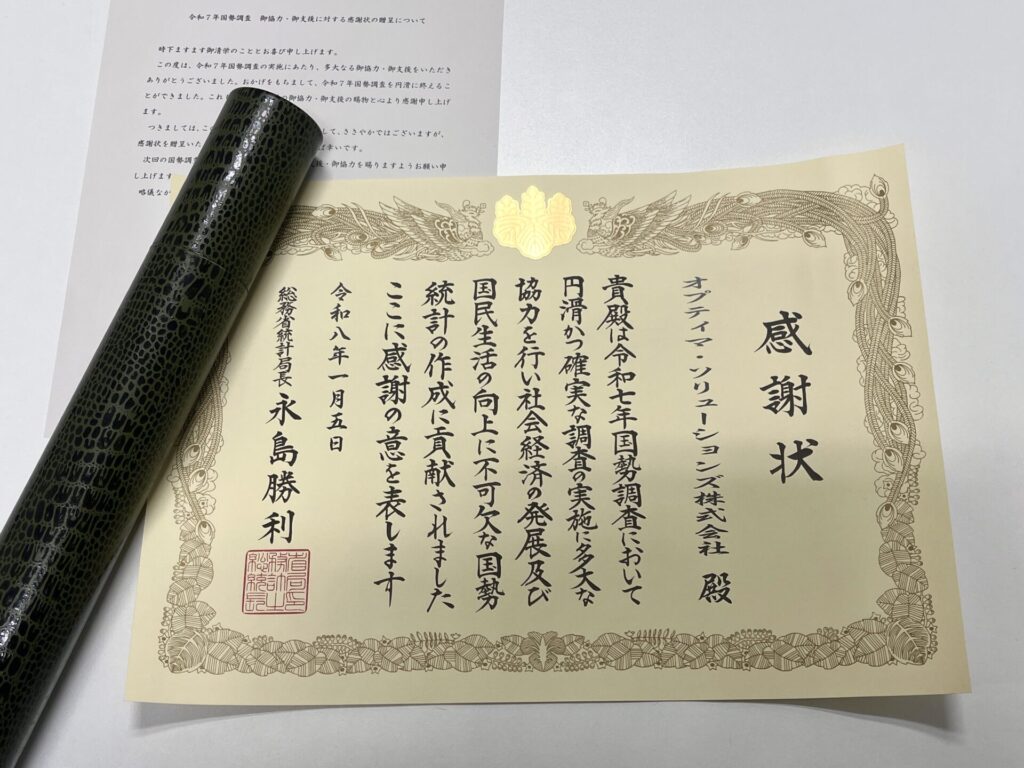 令和７年国勢調査　御協力・御支援に対する感謝状の贈呈について
時下ますます御清学のこととお喜び申し上げます。
この度は、令和７年国勢調査の実施にあたり、多大なる御協力・御支援をいただき
ありがとうございました。おかげをもちまして、令和７年国勢調査を円滑に終えるこ
とができました。これ
の御協力・御支援の賜物と心より感謝申し上げ
ます。
つきましては、こ
して、ささやかではございますが、
感謝状を贈呈いた
幸いです。
次回の国勢調査
・御協力を賜りますようお願い申
し上げます
略儀なが
感謝状
オプティマ・ソリューションズ株式会社　殿
貴殿は令和七年国勢調査において
円滑かつ確実な調査の実施に多大な
協力を行い社会経済の発展及び
国民生活の向上に不可欠な国勢
統計の作成に貢献されました
ここに感謝の意を表します
令和八年一月五日
総務省統計局長　永島勝利